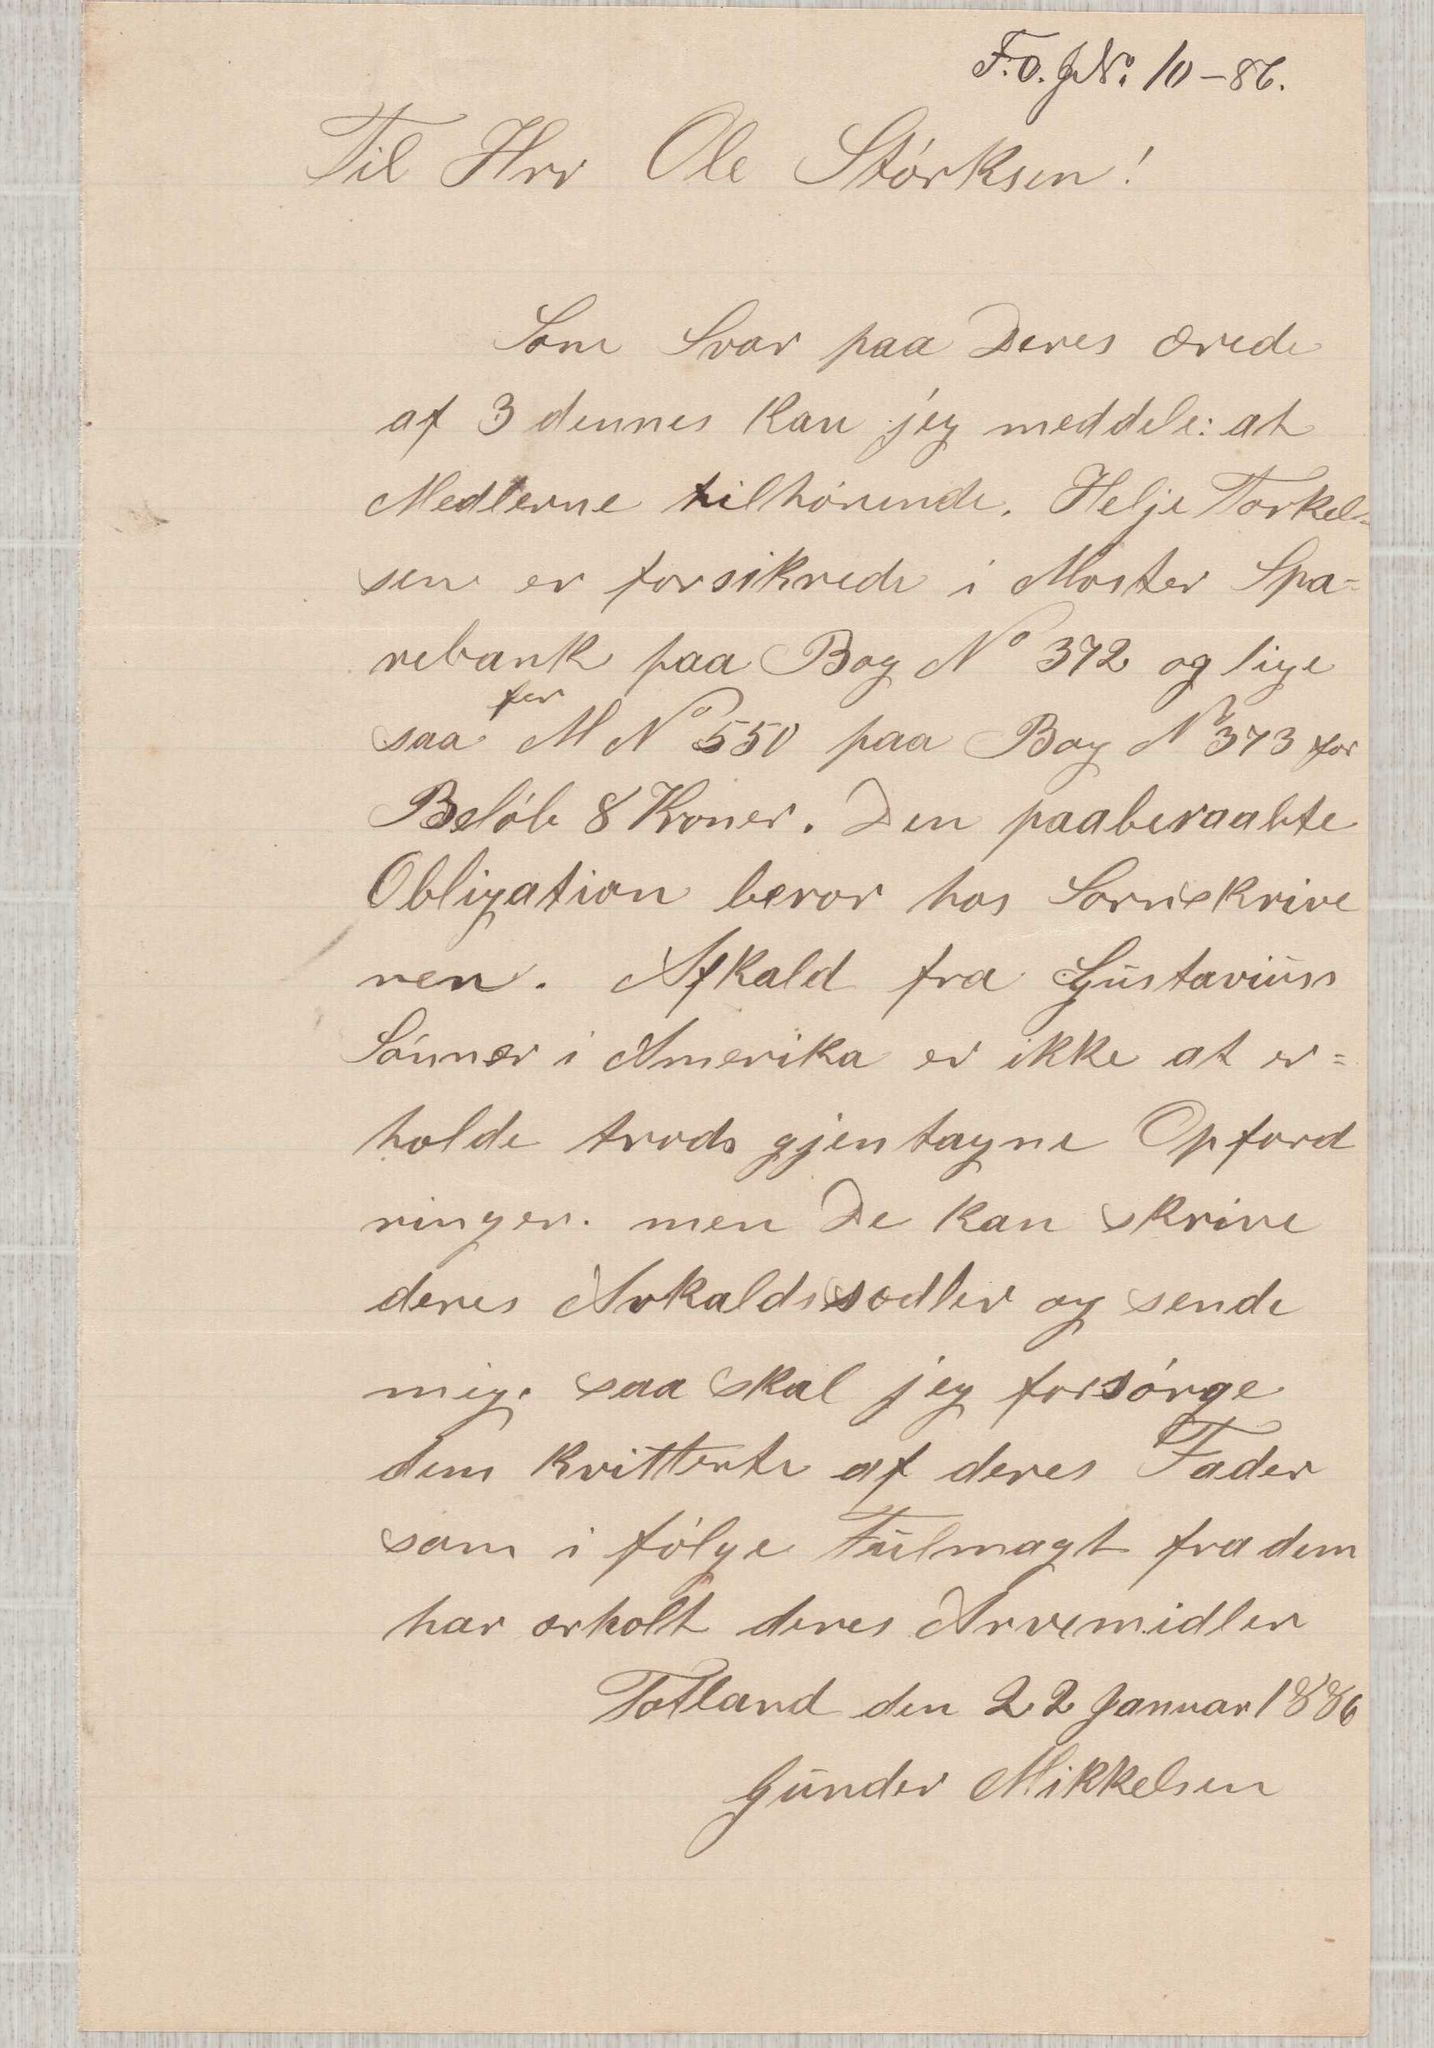 F.O.J.No. 10-86.
Til Hrr Ole Størksen!
Som Svar paa Deres ærede
af 3 dennes kan jeg meddele: at
Medlerne tilhørende. Helje Torkel-
sen er forsikrede i Moster Spa=
rebank paa Bog No 372 og lige
saa for M No 550 paa Bog No 373 for
Beløb 8 Kroner. Den paaberaabte
Obligation beror hos Sorriskrive
ren. Afkald fra Gustaviuss
Sønner i Amerika er ikke at er=
holde trods gjentagne Opford
ringer. men De kan skrive
deres Avkaldssedler og sende
mig. saa skal jeg forsørge
dem kvitterte af deres Fader
som i følge Fulmagt fra dem
har erholt deres Arvemidler
Totland den 22 Januar 1886
Gunder Mikkelsen